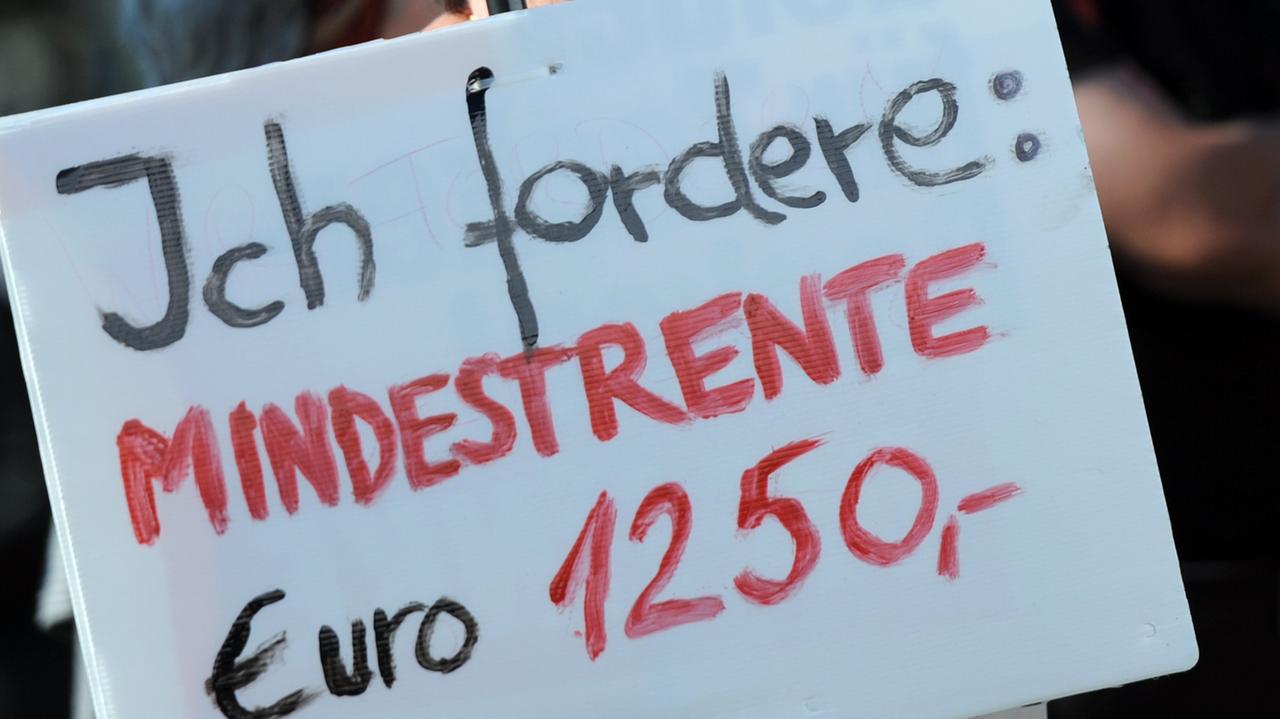 Ich fordere:
MINDESTRENTE
Euro 1250,-